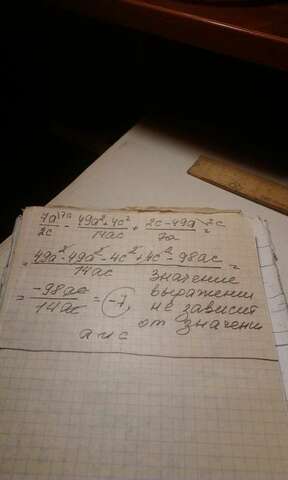 7a\7a / 2c - 49a²+4c² / 14ac + 2c-49a\2c / 7a =
= 49a² - 49a² - 4c² + 4c² - 98ac / 14ac = значение
= -98ac / 14ac = -7, выражени
не зависит
от значени
а и с